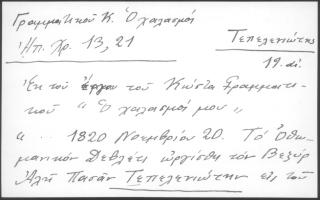 Γραμματικοῦ Κ. Ὁ χαλασμός
Ἠπ. Χρ. 13, 21
Τεπελενιώτης
19. αἰ.
Ἐκ τοῦ ἔργου τοῦ Κώστα Γραμματι-
κοῦ " Ὁ χαλασμός μου "
" ... 1820 Νοεμβρίου 20. Τό Ὀθω-
μανικόν Δεβλέτι ὠργίσθη τόν Βεζύρ
Ἀλῆ Πασᾶν Τεπελενιώτην εἰς τοῦ